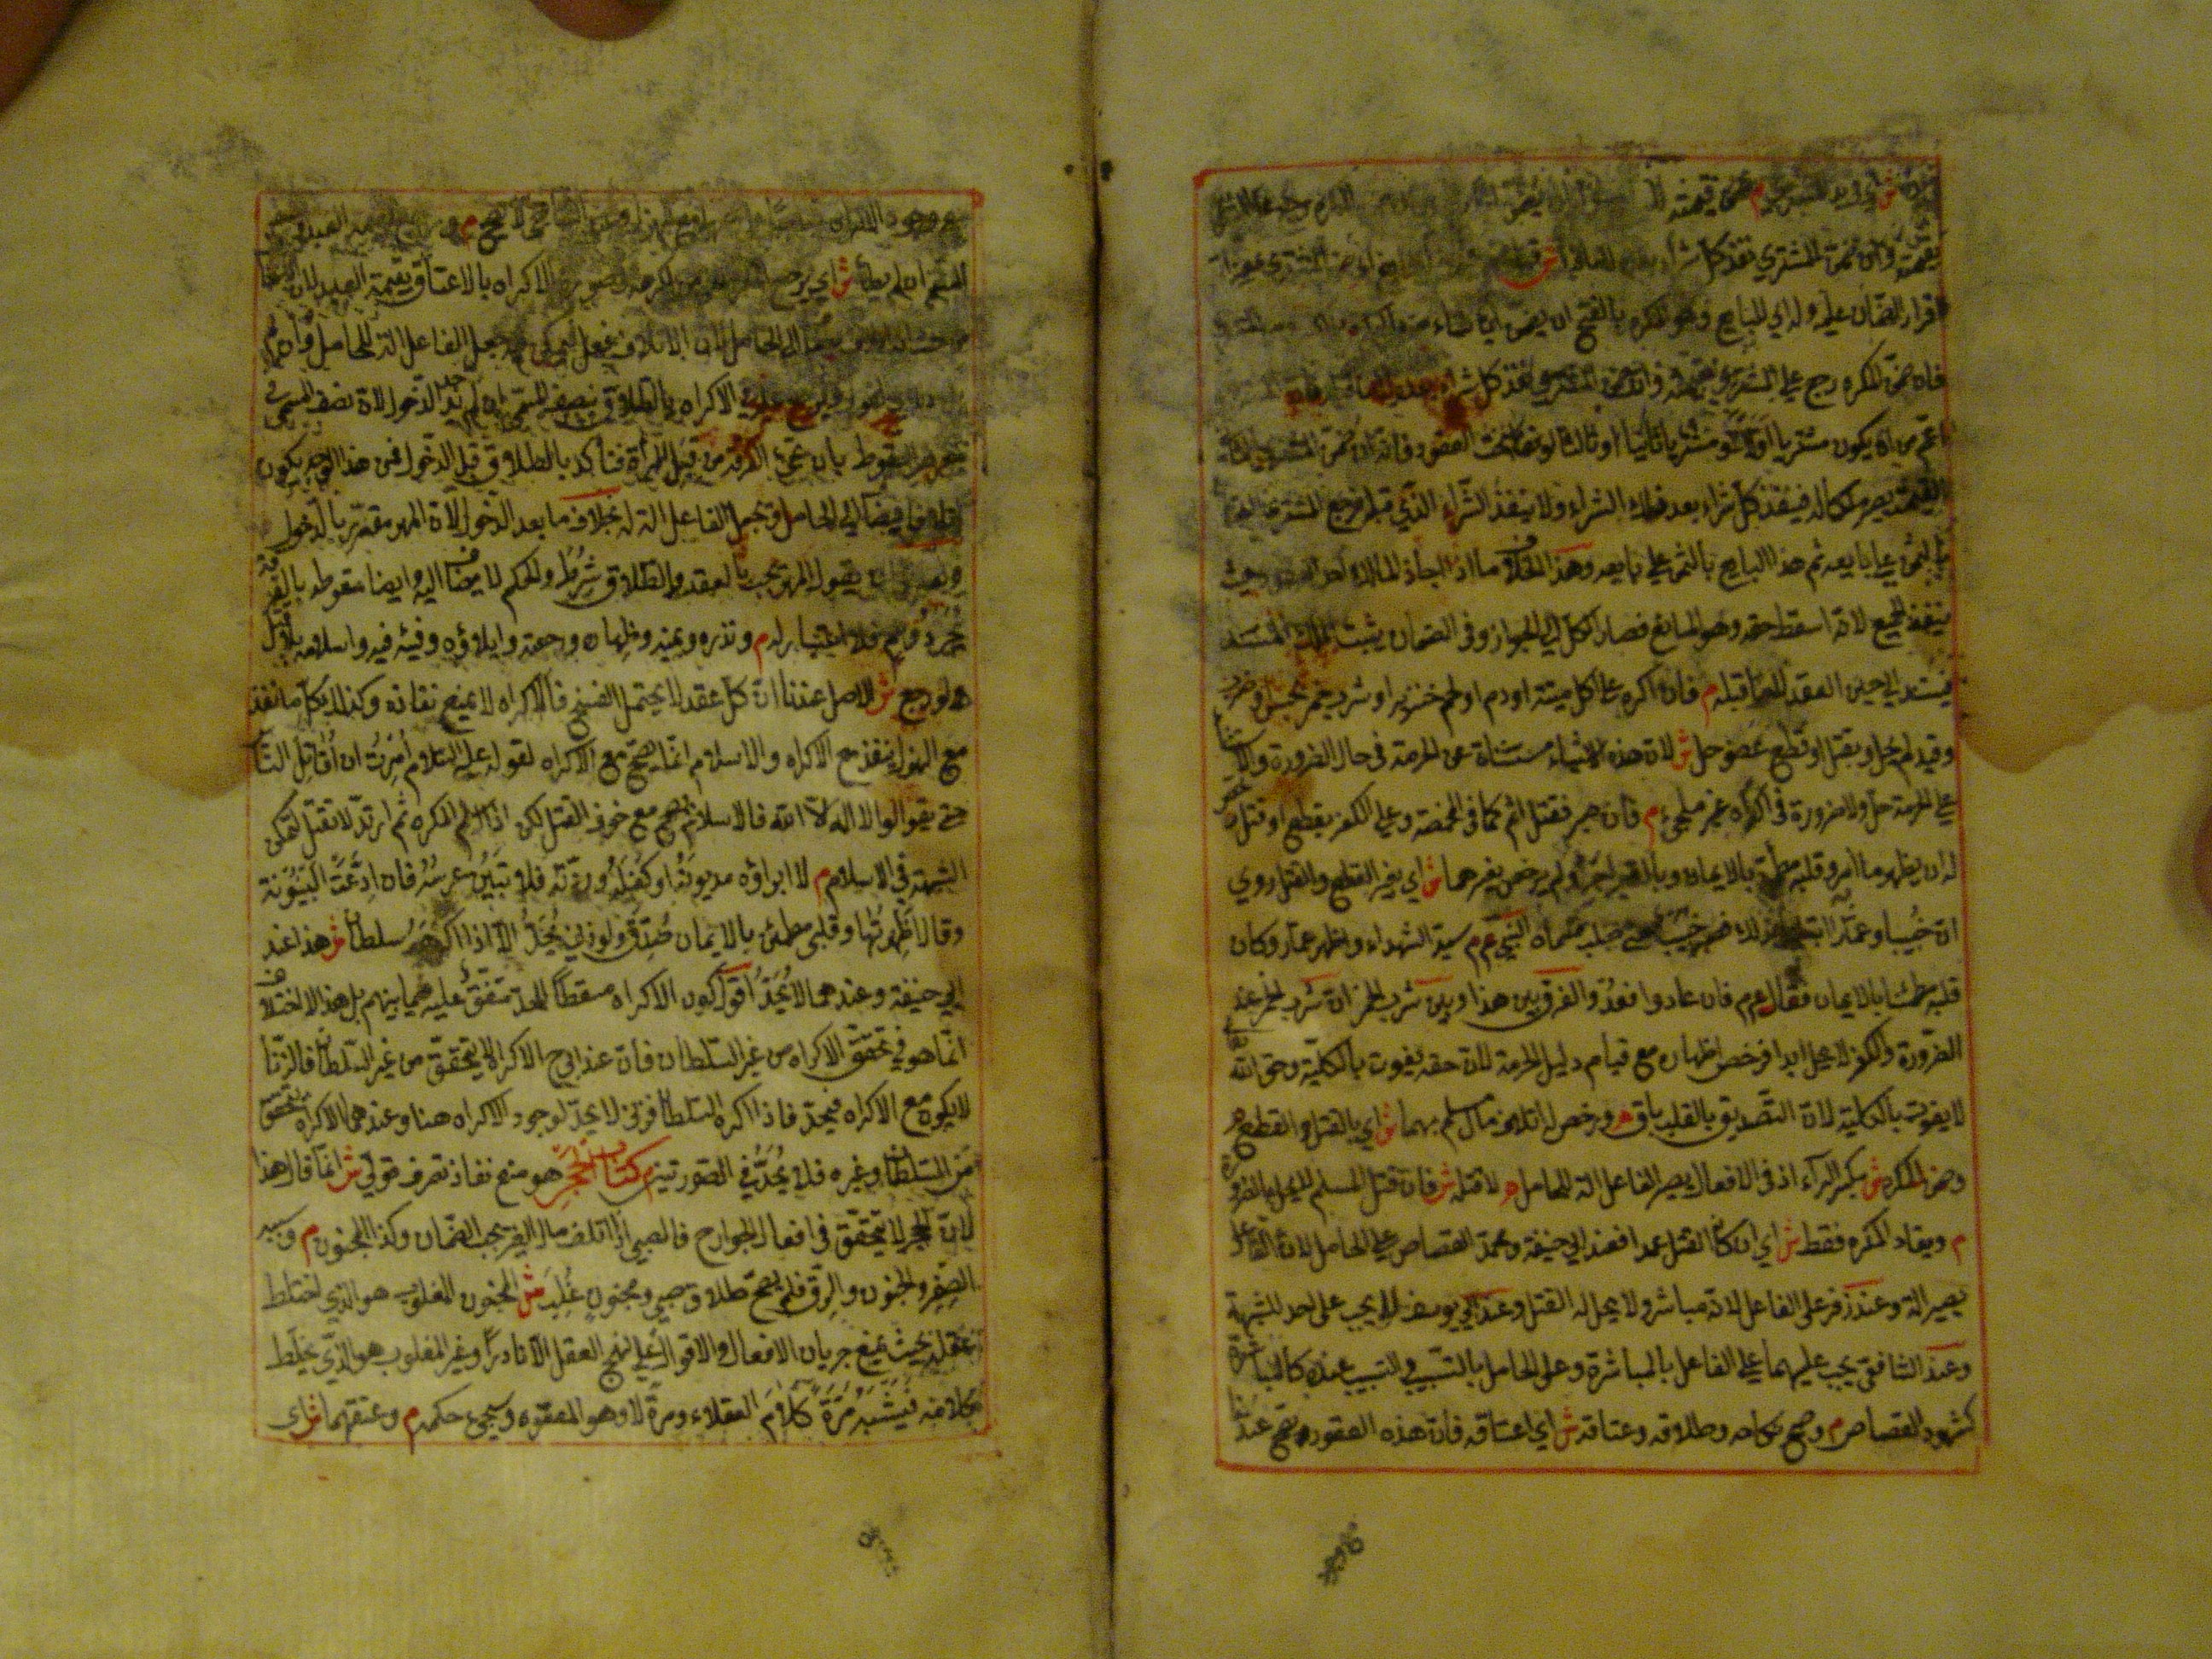 بقيمته وان ضمن المشتري نفذ كل شراء
قرار الضمان عليه وله اي للبايع وهو المكره بالفتح ان يضمن ايا شاء
فان ضمن المكره رجع على المشتري بقيمته وان ضمن المشتري نفذ كل شراء بعده
اعم من ان يكون مشتريا اولا او مشتريا ثانيا او ثالثا لو تناسخت العقود فانه ان ضمن المشتري الثاني
القيمة يصير ملكا له فينفذ كل شراء بعد ذلك الشراء ولا ينفذ الشراء الذي قبله فيرجع المشتري
بالثمن على بايعه ثم هذا البايع بالثمن على بايعه وهذا بخلاف ما اذا اجاز المالك احد حيث
ينفذ الجميع لانه اسقط حقه وهو المانع فصار الكل الى الجواز وفي الضمان يثبت الملك المستند
فيستند الى حين العقد لا ما قبله م فان اكره على اكل ميتة او دم او لحم خنزير او شرب خمر بحبس او ضرب
وقيد لم يحل وبقتل او قطع عضو حل ش لان هذه الاشياء مستثناة عن الحرمة في حال الضرورة والاستثناء
على الحرمة حل ولا ضرورة في اكراه غير ملجئ م فان صبر فقتل اثم كما في المخمصة وعلى الكفر بقطع او قتل
له ان يظهر ما امر وقلبه مطمئن بالايمان وبالصبر اجر ولم يرخص بغيرهما ش اي بغير القطع والقتل روي
ان خبيبا وعمارا ابتليا بذلك فصبر خبيب حتى صلب فسماه النبي عم سيد الشهداء واظهر عمار وكان
قلبه مطمئنا بالايمان فقال عم فان عادوا فعد والفرق بين هذا وبين شرب الخمر ان شرب الخمر عند
الضرورة والكفر لا يحل ابدا فرخص اظهاره مع قيام دليل الحرمة لان حقه يفوت بالكلية وحق الله
لا يفوت بالكلية لان التصديق بالقلب باق م ورخص له اتلاف مال مسلم بهما ش اي بالقتل والقطع م
وضمن المكره ش بكسر الراء اذ في الافعال يصير الفاعل الة للحامل م لا قتله ش فان قتل المسلم لا يحل بالضرورة
م ويقاد المكره فقط ش اي ان كان القتل عمدا فعند ابي حنيفة ومحمد القصاص على الحامل لان الفاعل
يصير الة وعند زفر على الفاعل لانه مباشر ولا يحل له القتل وعند ابي يوسف لا يجب على احد للشبهة
وعند الشافعي يجب عليهما على الفاعل بالمباشرة وعلى الحامل بالتسبيب والتسبيب عنده كالمباشرة
كشهود القصاص م وصح نكاحه وطلاقه وعتاقه ش اي اعتاقه فان هذه العقود تصح عندنا
مع وجود الاكراه
المسمى ان لم يطأ ش اي يرجع في صورة الاكراه بالاعتاق بقيمة العبد لان
من حيث انه اتلاف يضاف الى الحامل لان الاتلاف فعل فيمكن جعل الفاعل الة للحامل
الاكراه بالطلاق بنصف المسمى ان لم يوجد الدخول لان نصف المسمى في
معرض السقوط بان تجيء الفرقة من قبل المرأة فتأكد بالطلاق قبل الدخول فمن هذا الوجه يكون
اتلافا فيضاف الى الحامل ويجعل الفاعل الة له بخلاف ما بعد الدخول لان المهر مقرر بالدخول
يقول المهر يجب بالعقد والطلاق شرط والحكم لا يضاف اليه وايضا سقوط بالفرقة
مجرد وهم فلا اعتبار له م ونذره ويمينه وظهاره ورجعته وايلاؤه وفيئه فيه واسلامه بلا قتل
لو رجع ش الاصل عندنا ان كل عقد لا يحتمل الفسخ فالاكراه لا يمنع نفاذه وكذلك كل ما نفذ
مع الهزل ينفذ مع الاكراه والاسلام انما يصح مع الاكراه لقوله عليه السلام امرت ان اقاتل الناس
حتى يقولوا لا اله الا الله فالاسلام يصح مع خوف القتل لكن اذا اسلم المكره ثم ارتد لا نقتل لتمكن
الشبهة في الاسلام م لا ابراؤه مديونه او كفيله وردته فلا تبين عرسه فان ادعت البينونة
وقال اظهرتها وقلبي مطمئن بالايمان صدق ولو زنى يحد الا اذا اكرهه سلطان ش هذا عند
ابي حنيفة وعندهما لا يحد اقول كون الاكراه مسقطا للحد متفق عليه فيما بينهم بل هذا الاختلاف
انما هو في تحقق الاكراه من غير السلطان فان عند ابي ح الاكراه لا يتحقق من غير السلطان فالزنا
لا يكون مع الاكراه فيحد فاذا اكره السلطان فزنى لا يحد لوجود الاكراه هنا وعندهما الاكراه يتحقق
من السلطان وغيره فلا يحد في الصورتين كتاب الحجر هو منع نفاذ تصرف قولي ش انما قال هذا
لان الحجر لا يتحقق في افعال الجوارح فالصبي اذا اتلف مال الغير يجب الضمان وكذا المجنون م وسببه
الصغر والجنون والرق فلم يصح طلاق صبي ومجنون غلب ش المجنون المغلوب هو الذي اختلط
عقله بحيث يمنع جريان الافعال والاقوال على نهج العقل الا نادرا وغير المغلوب هو الذي يخلط
كلامه فيشبه مرة كلام العقلاء ومرة لا وهو المعتوه وسيجيء حكمه م وعتقهما ش اي